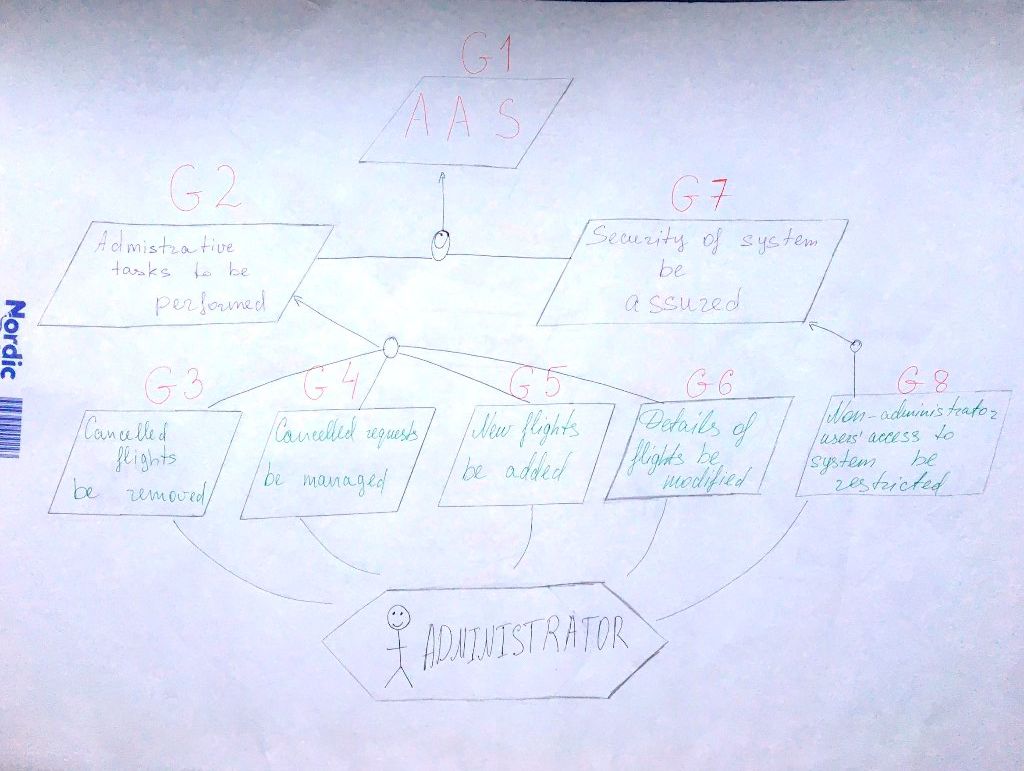 G1
AAS
G2
G7
Admistrative
tasks to be
performed
Security of system
be
assured
Nordic
G3
G4
G5
G6
G8
Cancelled
flights
be removed
Cancelled requests
be managed
New flights
be added
Details of
flights be
modified
Non-administrator
users' access to
system be
restricted
ADMINISTRATOR